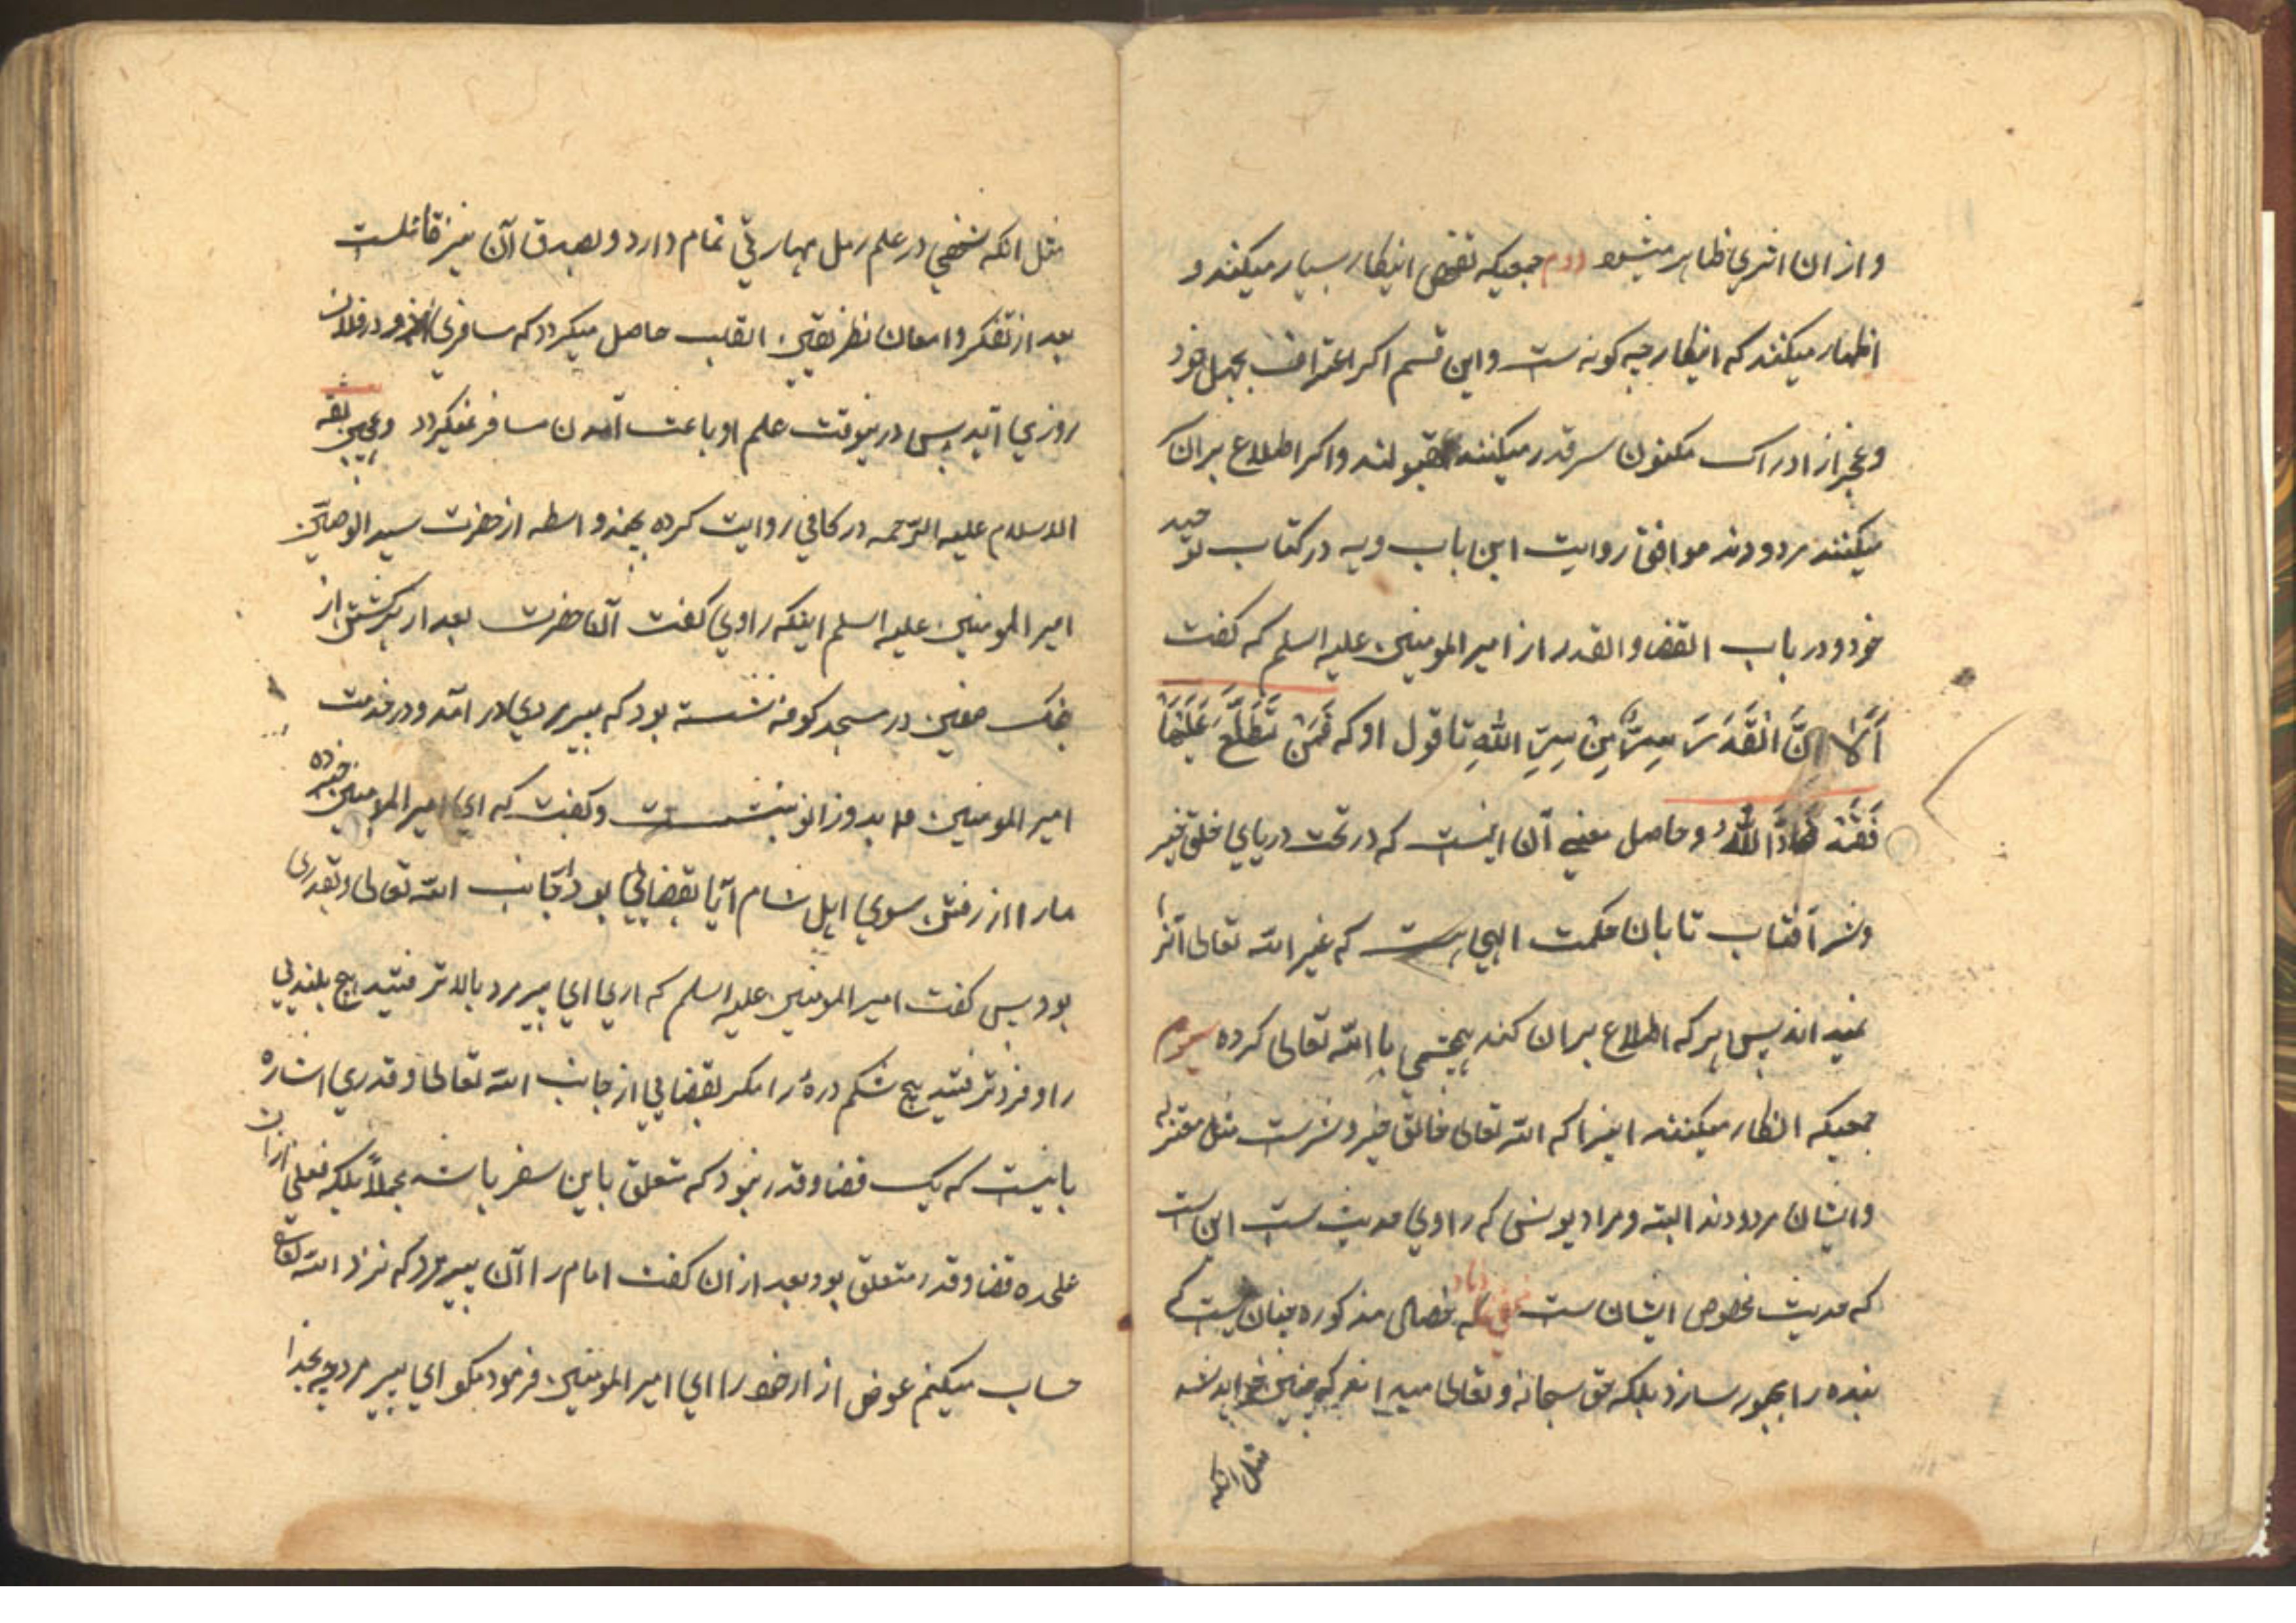 و از ان اثری ظاهر میشود دوم جمعیکه تفحص اینکار بسیار میکنند و
اظهار میکنند که اینکار چه کونه ست و این قسم اکر اعتراف بجهل خود
و عجز از ادراک مکنون سر قدر میکنند مقبولند و اکر اطلاع بران
میکنند مردودند موافق روایت ابن بابویه در کتاب توحید
خود در باب القضا و القدر از امیر المومنین علیه السلم که کفت
اَلَا اِنَّ الْقَدَرَ سِرٌّ مِنْ سِرِّ اللهِ تا قول او که فَمَنْ تَطَلَّعَ عَلَیْهَا
فَقَدْ ضَادَّ اللهَ و حاصل معنی آن اینست که در تحت دریای خلق خیر
و شر آفتاب تابان حکمت الهی هست که غیر الله تعالی آنرا
نمیداند پس هر که اطلاع بران کند بهچشمی با الله تعالی کرده سوم
جمعیکه انکار میکنند اینرا که الله تعالی خالق خیر و شرست مثل معتزله
و ایشان مردودند البته و مراد یونس که راوی حدیث ست این است
که حدیث مخصوص ایشان ست که بخصال مذکوره چنان نیست که
بنده را مجبور سازد بلکه حق سبحانه و تعالی میداند که چنین خواهد شد
مثل انکه
مثل انکه شخصی در علم رمل مهارتی تمام دارد و بصدق آن نیز قائلست
بعد از تفکر و امعان نظر بیقین القلب حاصل میکردد که مسافری امروز در فلان
روزی اید پس درینوقت علم او باعث آمدن مسافر نمیکردد و ثقه
الاسلام علیه الرّحمه در کافی روایت کرده بچند واسطه از حضرت سید الوصیّین
امیر المومنین علیه السلم اینکه راوی کفت آنحضرت بعد از برکشتن از
جنک صفین در مسجد کوفه نشسته بود که پیر مردی در آمد و در خدمت
امیر المومنین بدو زانو بنشست و کفت که ای امیر المومنین خبر ده
مارا از رفتن سوی اهل شام آیا بقضائی بود از جانب الله تعالی و بقدری
بود پس کفت امیر المومنین علیه السلم که اری ای پیر مرد بالا نرفتید هیچ بلندی
را و فرو نرفتید هیچ شکم درهٔ را مکر بقضایی از جانب الله تعالی و قدری اشاره
بانیست که یک قضا و قدر نبود که متعلق باین سفر باشد مجملاً بلکه بفعلی ازان
علحده قضا و قدر متعلق بود بعد از ان کفت امام را آن پیر مرد که نزد الله تعالی
حساب میکنم عوض ازار خود را ای امیر المومنین فرمود مکو ای پیر مرد بخدا